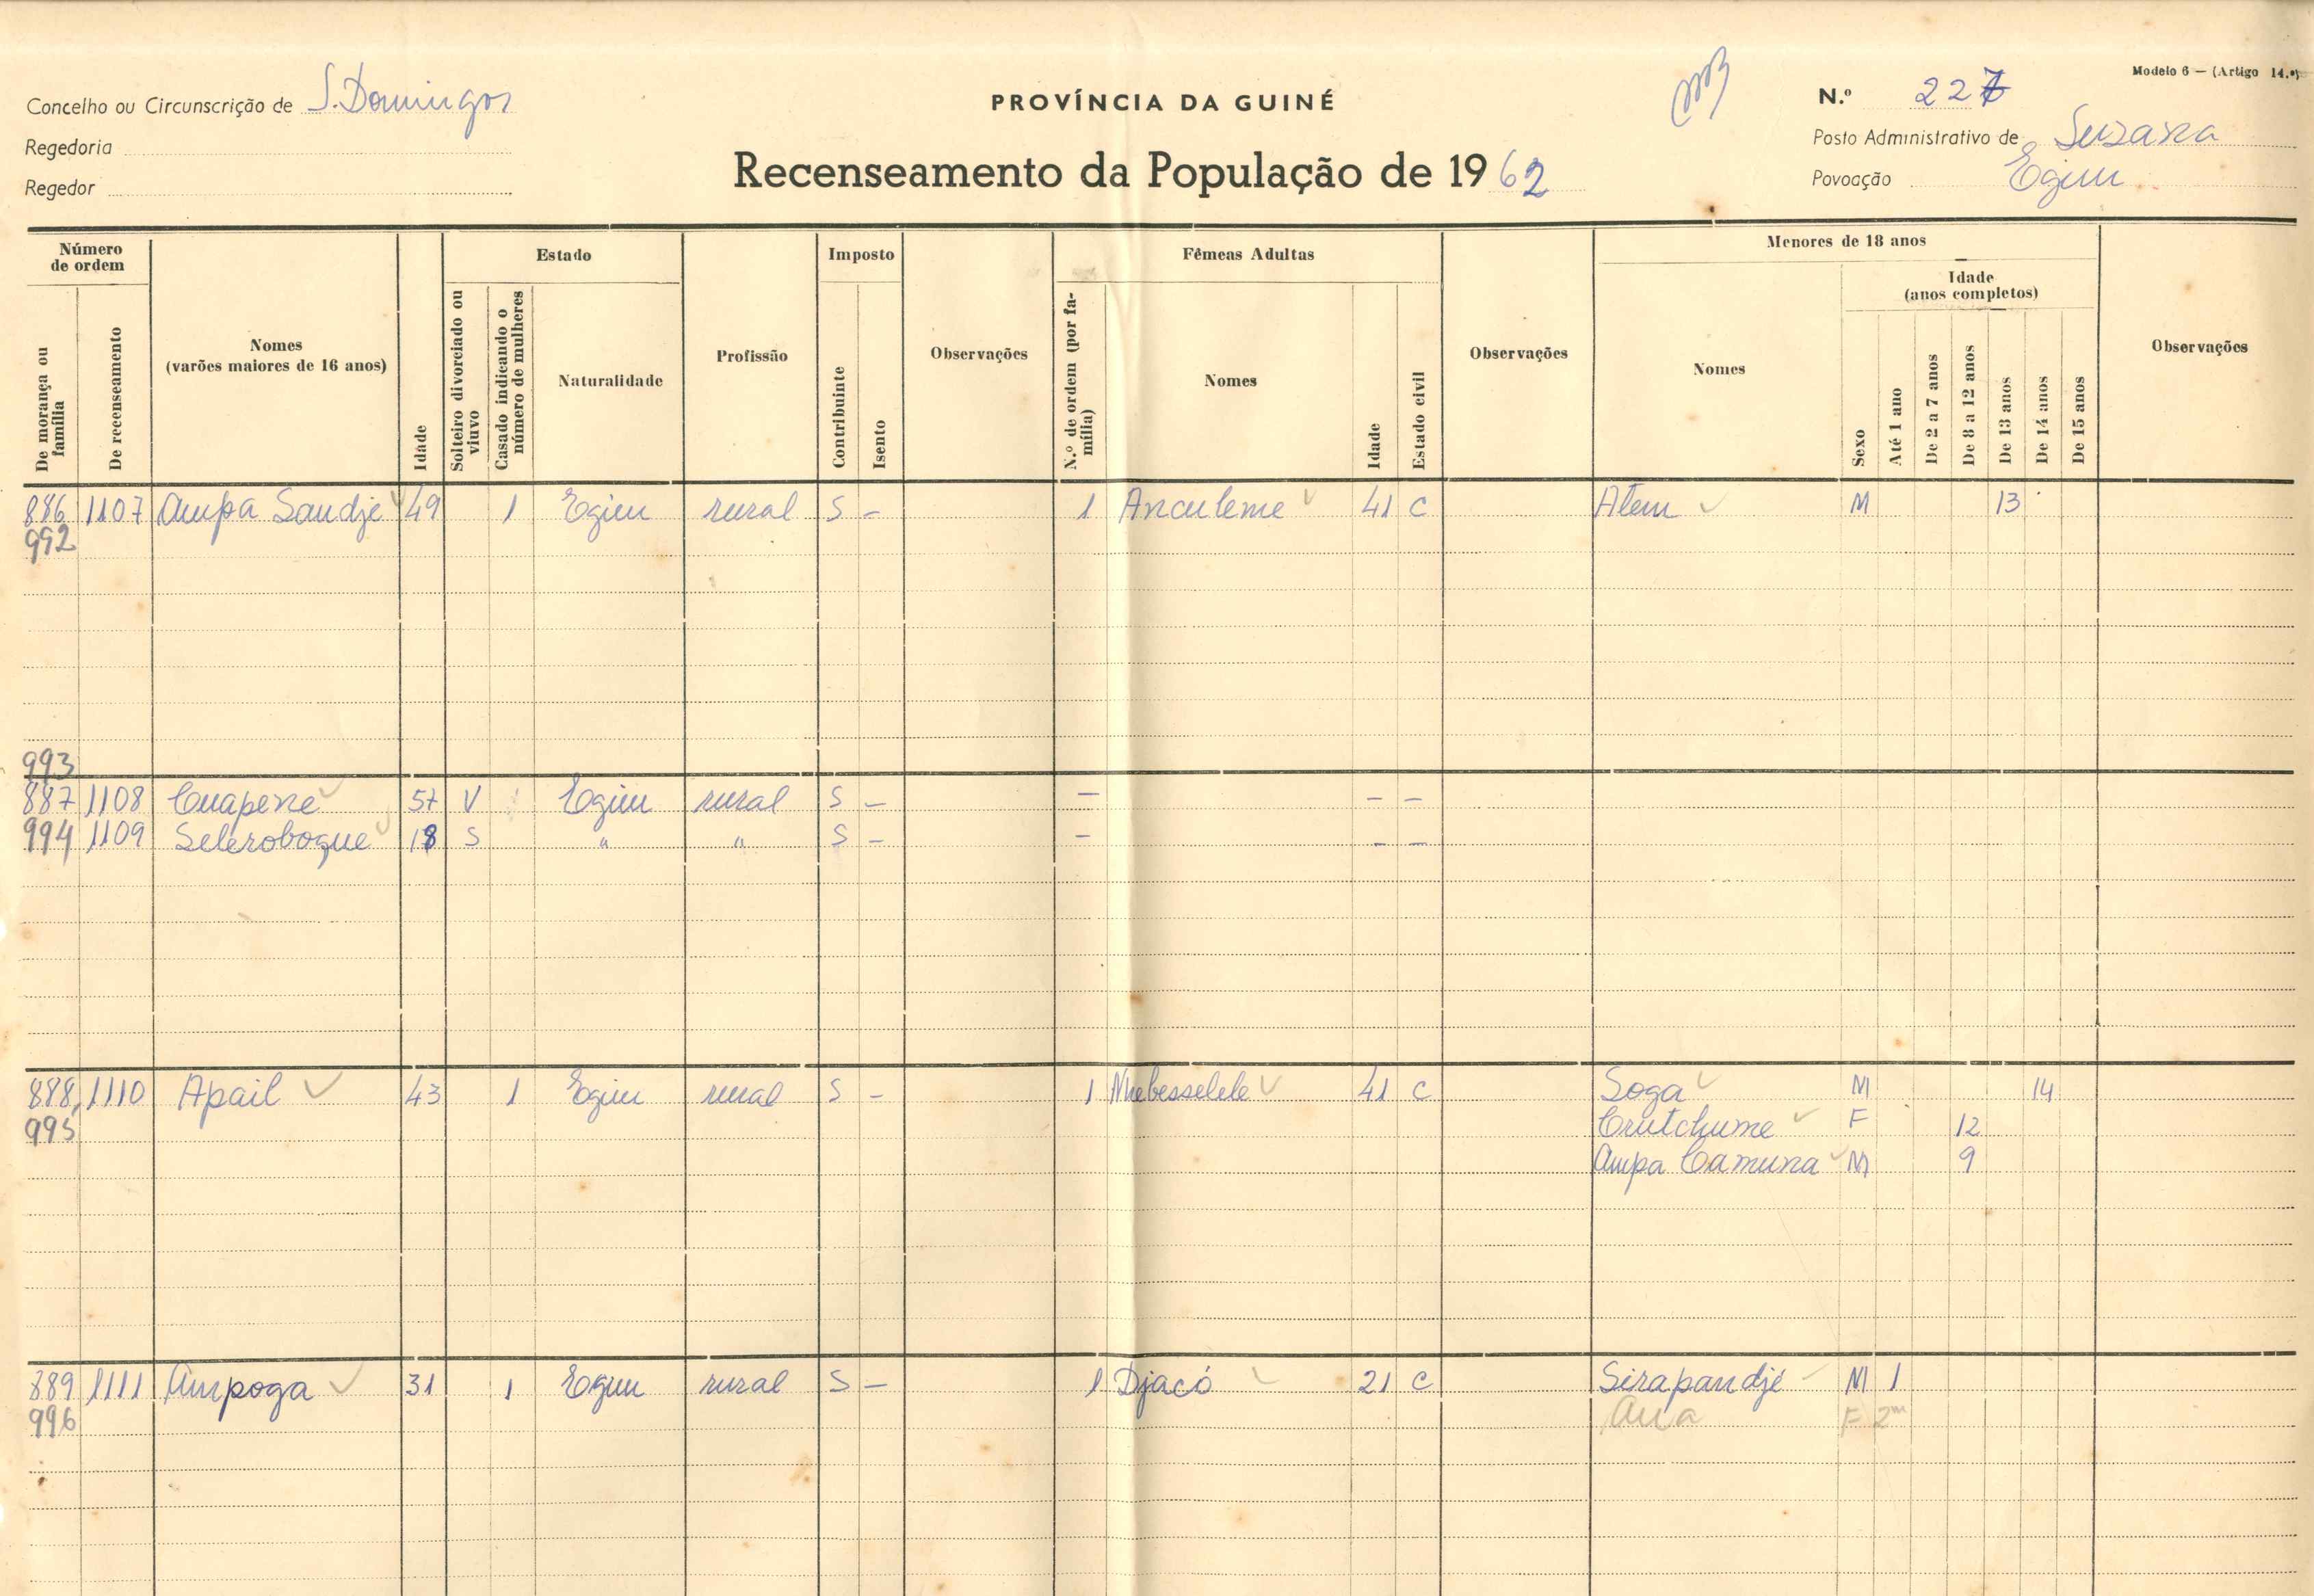 Modelo 6 — (Artigo 14.º)
Concelho ou Circunscrição de S. Domingos
PROVÍNCIA DA GUINÉ
N.º 227
Regedoria
Posto Administrativo de Suzana
Regedor
Recenseamento da População de 1962
Povoação Egim
Número de ordem
Estado
Imposto
Fêmeas Adultas
Menores de 18 anos
Idade (anos completos)
De morança ou família
De recenseamento
Nomes (varões maiores de 16 anos)
Idade
Solteiro divorciado ou viuvo
Casado indicando o número de mulheres
Naturalidade
Profissão
Contribuinte
Isento
Observações
N.º de ordem (por família)
Nomes
Idade
Estado civil
Observações
Nomes
Sexo
Até 1 ano
De 2 a 7 anos
De 8 a 12 anos
De 13 anos
De 14 anos
De 15 anos
Observações
886 1107 Ampa Sandjé 49 1 Egim rural S – 1 Anculeme 41 C Atem M 13
992
993
887 1108 Cuapene 57 V Egim rural S – – – –
994 1109 Seleroboque 18 S " " S – – – –
888 1110 Apail 43 1 Egim rural S – 1 41 C Soga M 14
995 Crutchume F 12
Ampa Camuna M 9
889 1111 Ampoga 31 1 Egim rural S – 1 Djacó 21 C Sirapandjé M 1
996 Ana F 2m